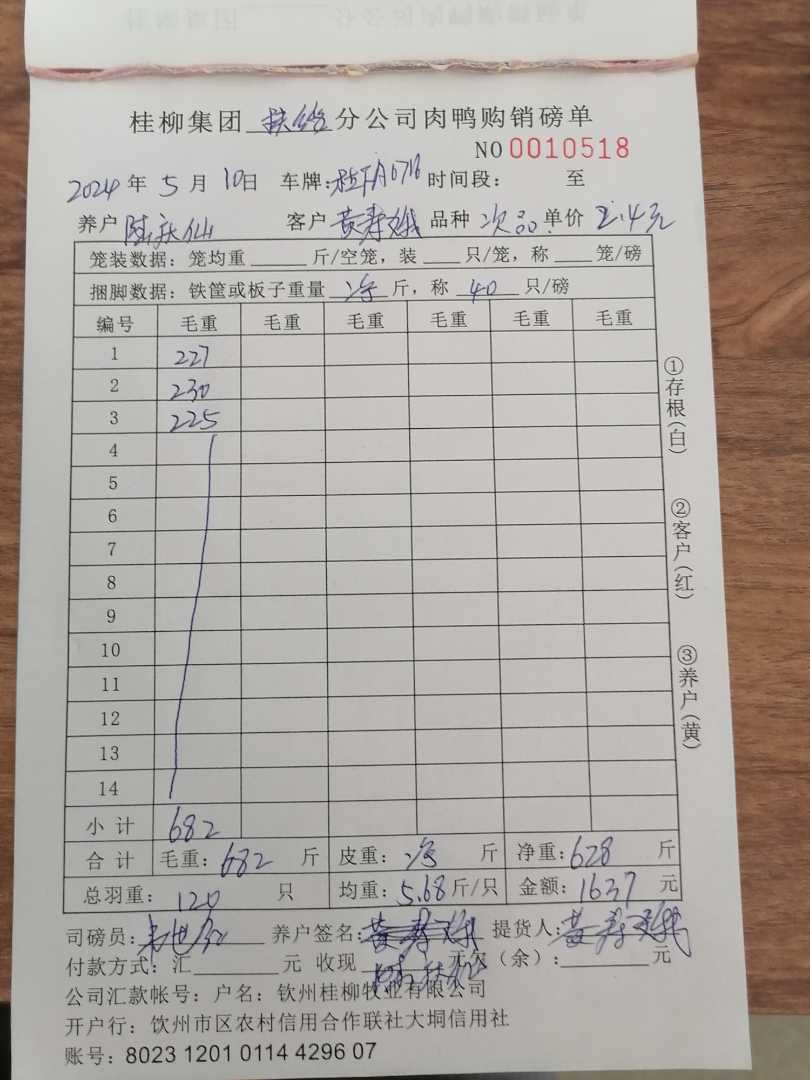 桂柳集团 扶绥 分公司肉鸭购销磅单
NO 0010518
2024 年 5 月 10日 车牌:桂FA6716 时间段: 至
养户 仙 客户 黄寿 品种 次品 单价 2.4元
笼装数据:笼均重 斤/空笼,装 只/笼,称 笼/磅
捆脚数据:铁筐或板子重量 净 斤,称 40 只/磅
编号 毛重 毛重 毛重 毛重 毛重 毛重
1 227
2 230
3 225
4
5
6
7
8
9
10
11
12
13
14
小计 682
合计 毛重:682 斤 皮重:净 斤 净重:628 斤
总羽重:120 只 均重:5.68斤/只 金额:1637 元
①存根(白)
②客户(红)
③养户(黄)
司磅员: 养户签名: 提货人:黄寿
付款方式:汇 元 收现 元欠(余): 元
公司汇款帐号:户名:钦州桂柳牧业有限公司
开户行:饮州市区农村信用合作联社大垌信用社
账号:8023 1201 0114 4296 07